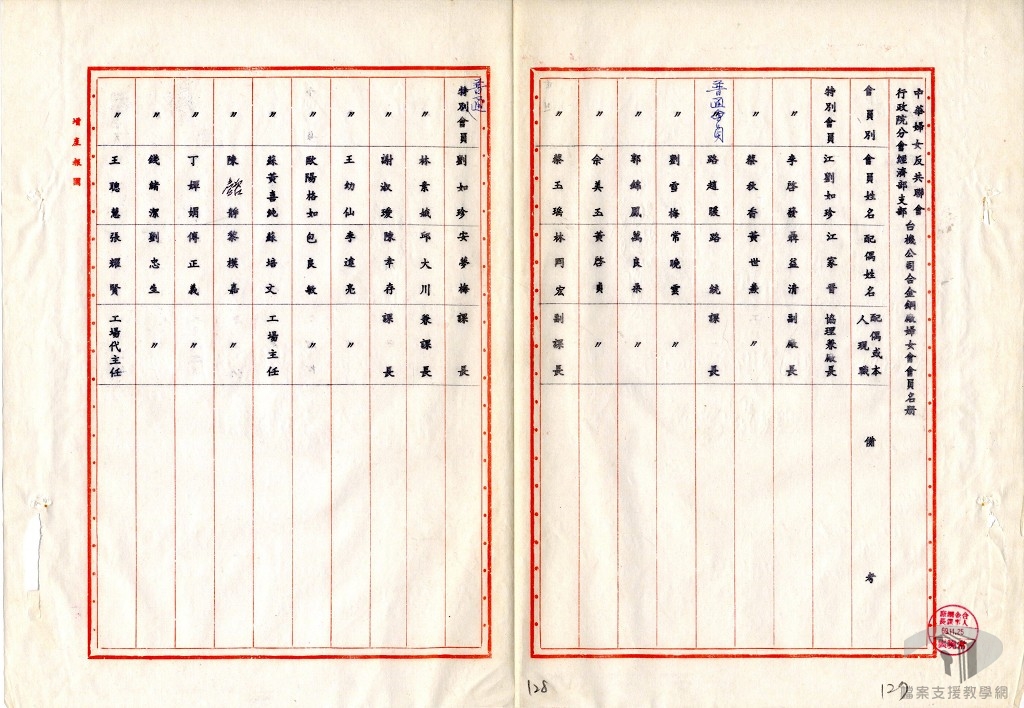 中華婦女反共聯會
行政院分會經濟部支部 台機公司合金鋼廠婦女會會員名冊
會員別 會員姓名 配偶姓名 配偶或本人現職 備考
特別會員 江劉如珍 江家晉 協理兼廠長
〃 李啓發 聶益清 副廠長
〃 蔡秋香 黃世燕 〃
普通會員 路趙暖 路統 課長
〃 劉雪梅 常晚雲 〃
〃 郭錦鳳 萬良桑 〃
〃 余美玉 黃啓貞 〃
〃 蔡玉瑤 林同宏 副課長
127
特別會員 普通 劉如珍 安夢梅 課長
〃 林素娥 邱大川 兼課長
〃 謝淑瓊 陳幸存 課長
〃 王幼仙 李遠亮 〃
〃 歐陽格如 包良敏 〃
〃 蘇黃喜純 蘇培文 工場主任
〃 陳靜 黎模嘉 〃
〃 丁嬋娟 傅正義 〃
〃 錢緒潔 劉忠生 〃
〃 王聰慧 張耀賢 工場代主任
128
檔案支援教學網